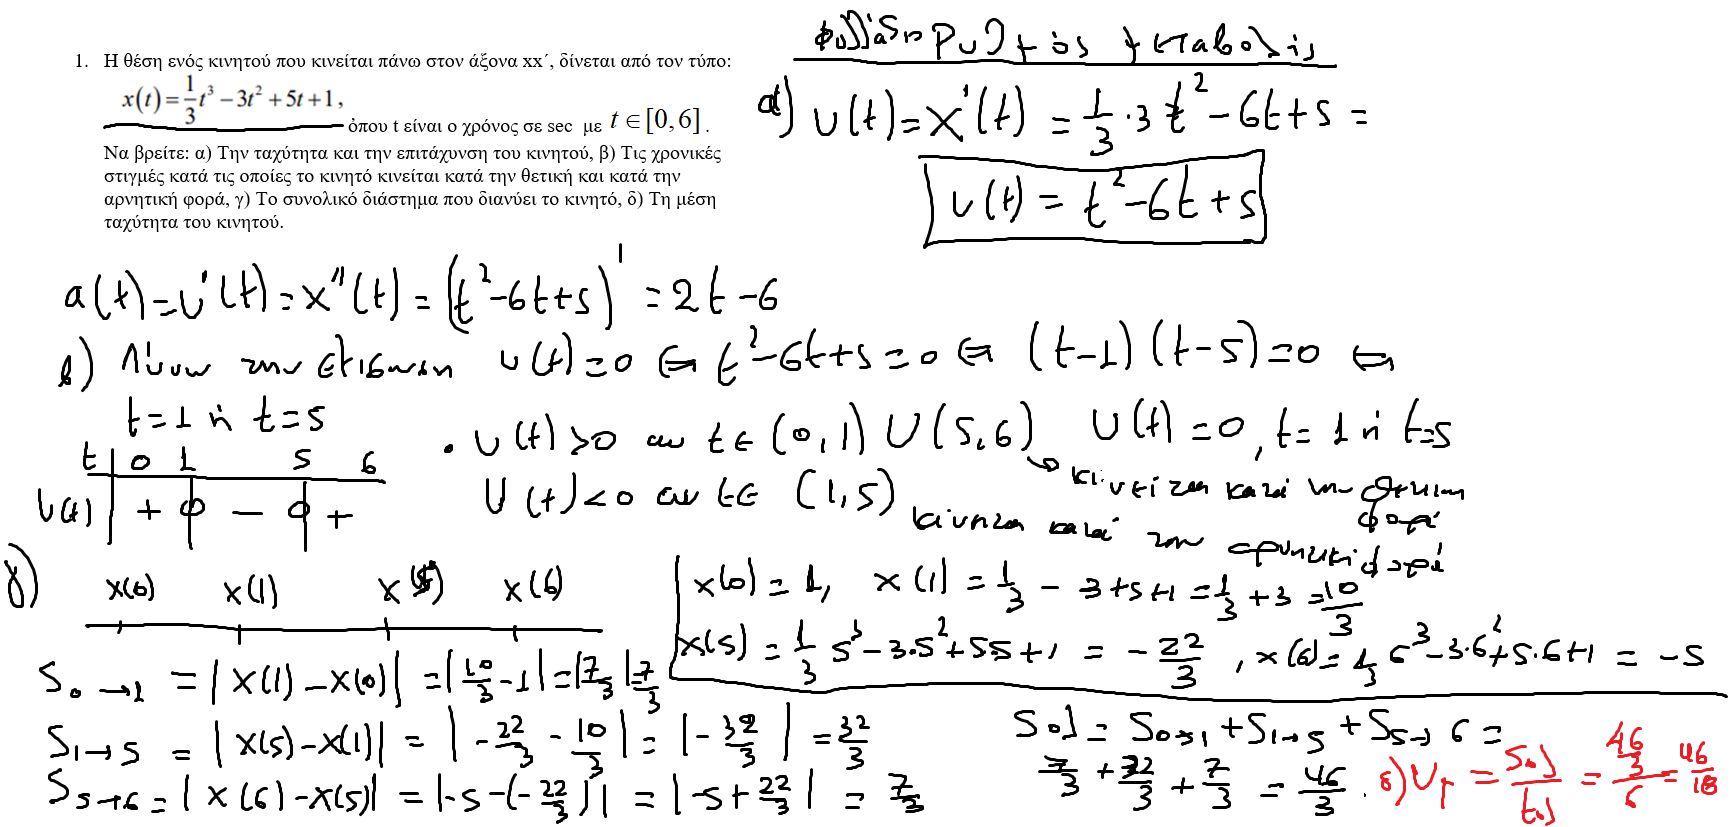 φυλλάδιο Ρυθμός μεταβολής
1. Η θέση ενός κινητού που κινείται πάνω στον άξονα xx΄, δίνεται από τον τύπο:
x(t)=1/3t³−3t²+5t+1, όπου t είναι ο χρόνος σε sec με t∈[0,6].
Να βρείτε: α) Την ταχύτητα και την επιτάχυνση του κινητού, β) Τις χρονικές
στιγμές κατά τις οποίες το κινητό κινείται κατά την θετική και κατά την
αρνητική φορά, γ) Το συνολικό διάστημα που διανύει το κινητό, δ) Τη μέση
ταχύτητα του κινητού.
α) υ(t)=x'(t) = 1/3·3t²−6t+5 =
υ(t) = t²−6t+5
a(t)=υ'(t)=x''(t)=(t²−6t+5)' = 2t−6
β) Λύνω την εξίσωση υ(t)=0 ⇔ t²−6t+5=0 ⇔ (t−1)(t−5)=0 ⇔
t=1 ή t=5
• υ(t)>0 αν t∈(0,1)∪(5,6) υ(t)=0, t=1 ή t=5
κινείται κατά την θετική φορά
υ(t)<0 αν t∈(1,5)
κινείται κατά την αρνητική φορά
t | 0 1 5 6
υ(t) | + 0 − 0 +
γ) x(0) x(1) x(5) x(6)
x(0)=1, x(1)=1/3−3+5+1=1/3+3=10/3
x(5)=1/3 5³−3·5²+5·5+1 = −22/3, x(6)=1/3 6³−3·6²+5·6+1 = −5
S0→1 = |x(1)−x(0)| = |10/3−1| = |7/3| = 7/3
S1→5 = |x(5)−x(1)| = |−22/3−10/3| = |−32/3| = 32/3
S5→6 = |x(6)−x(5)| = |−5−(−22/3)| = |−5+22/3| = 7/3
Sολ = S0→1+S1→5+S5→6 =
7/3+32/3+7/3 = 46/3.
δ) υμ = Sολ/tολ = 46/3/6 = 46/18